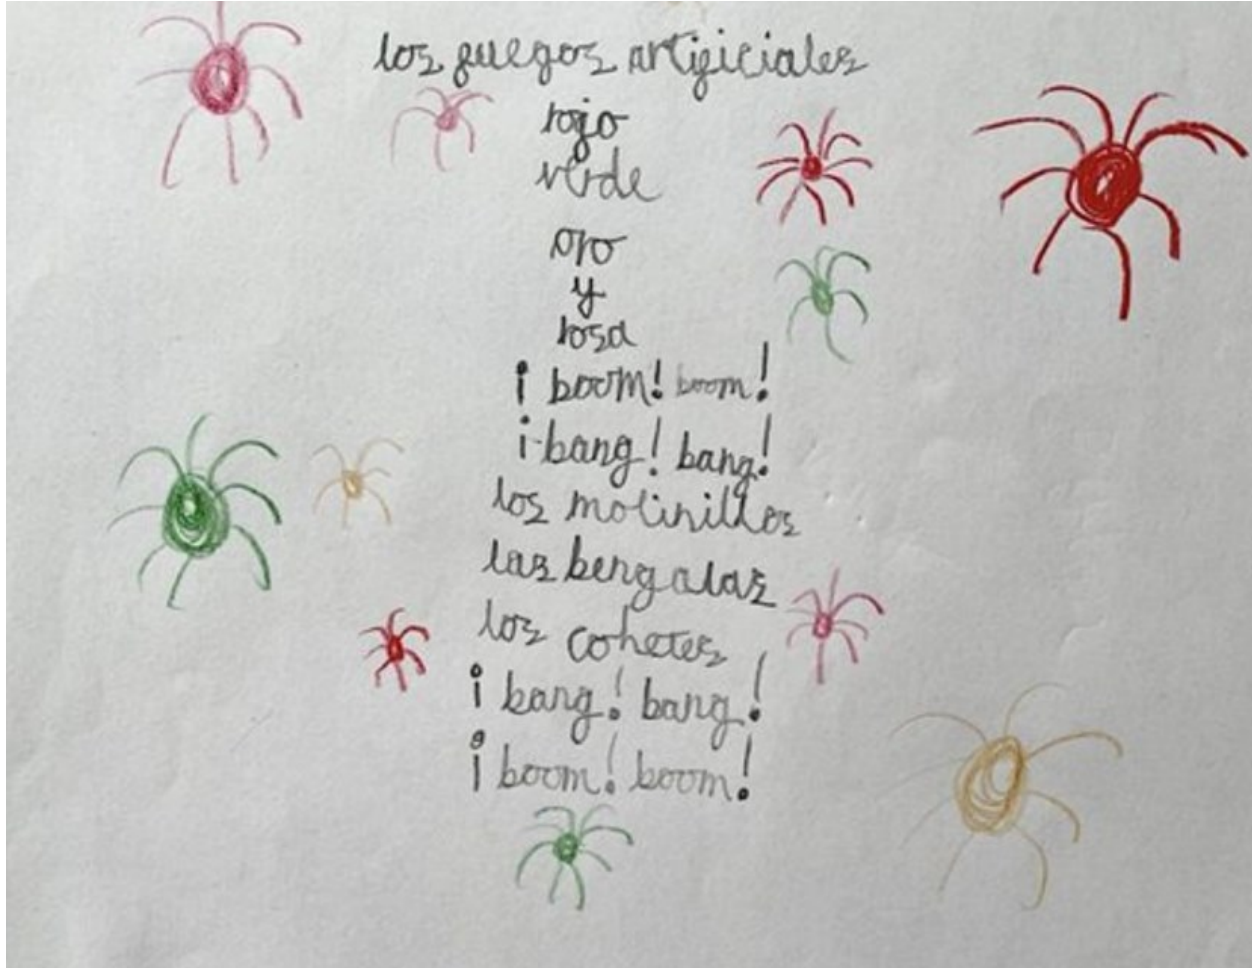 los fuegos artificiales
rojo
verde
oro
y
rosa
¡ boom! boom!
¡ bang! bang!
los molinillos
las bengalas
los cohetes
¡ bang! bang!
¡ boom! boom!